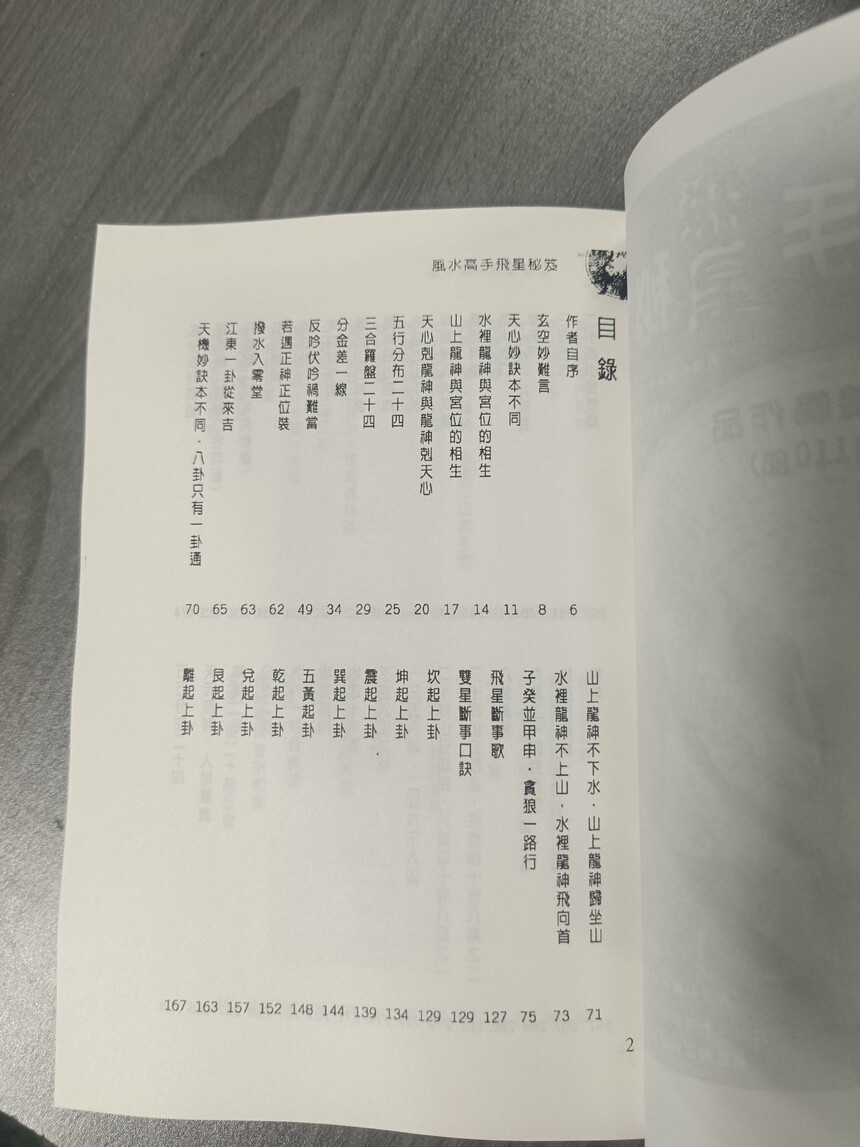 風水高手飛星秘笈
目錄
作者自序 6
玄空妙難言 8
天心妙訣本不同 11
水裡龍神與宮位的相生 14
山上龍神與宮位的相生 17
天心剋龍神與龍神剋天心 20
五行分布二十四 25
三合羅盤二十四 29
分金差一線 34
反吟伏吟禍難當 49
若遇正神正位裝 62
撥水入零堂 63
江東一卦從來吉 65
天機妙訣本不同．八卦只有一卦通 70
山上龍神不下水．山上龍神歸坐山 71
水裡龍神不上山．水裡龍神飛向首 73
子癸並甲申．貪狼一路行 75
飛星斷事歌 127
雙星斷事口訣 129
坎起上卦 129
坤起上卦 134
震起上卦 139
巽起上卦 144
五黃起卦 148
乾起上卦 152
兌起上卦 157
艮起上卦 163
離起上卦 167
2